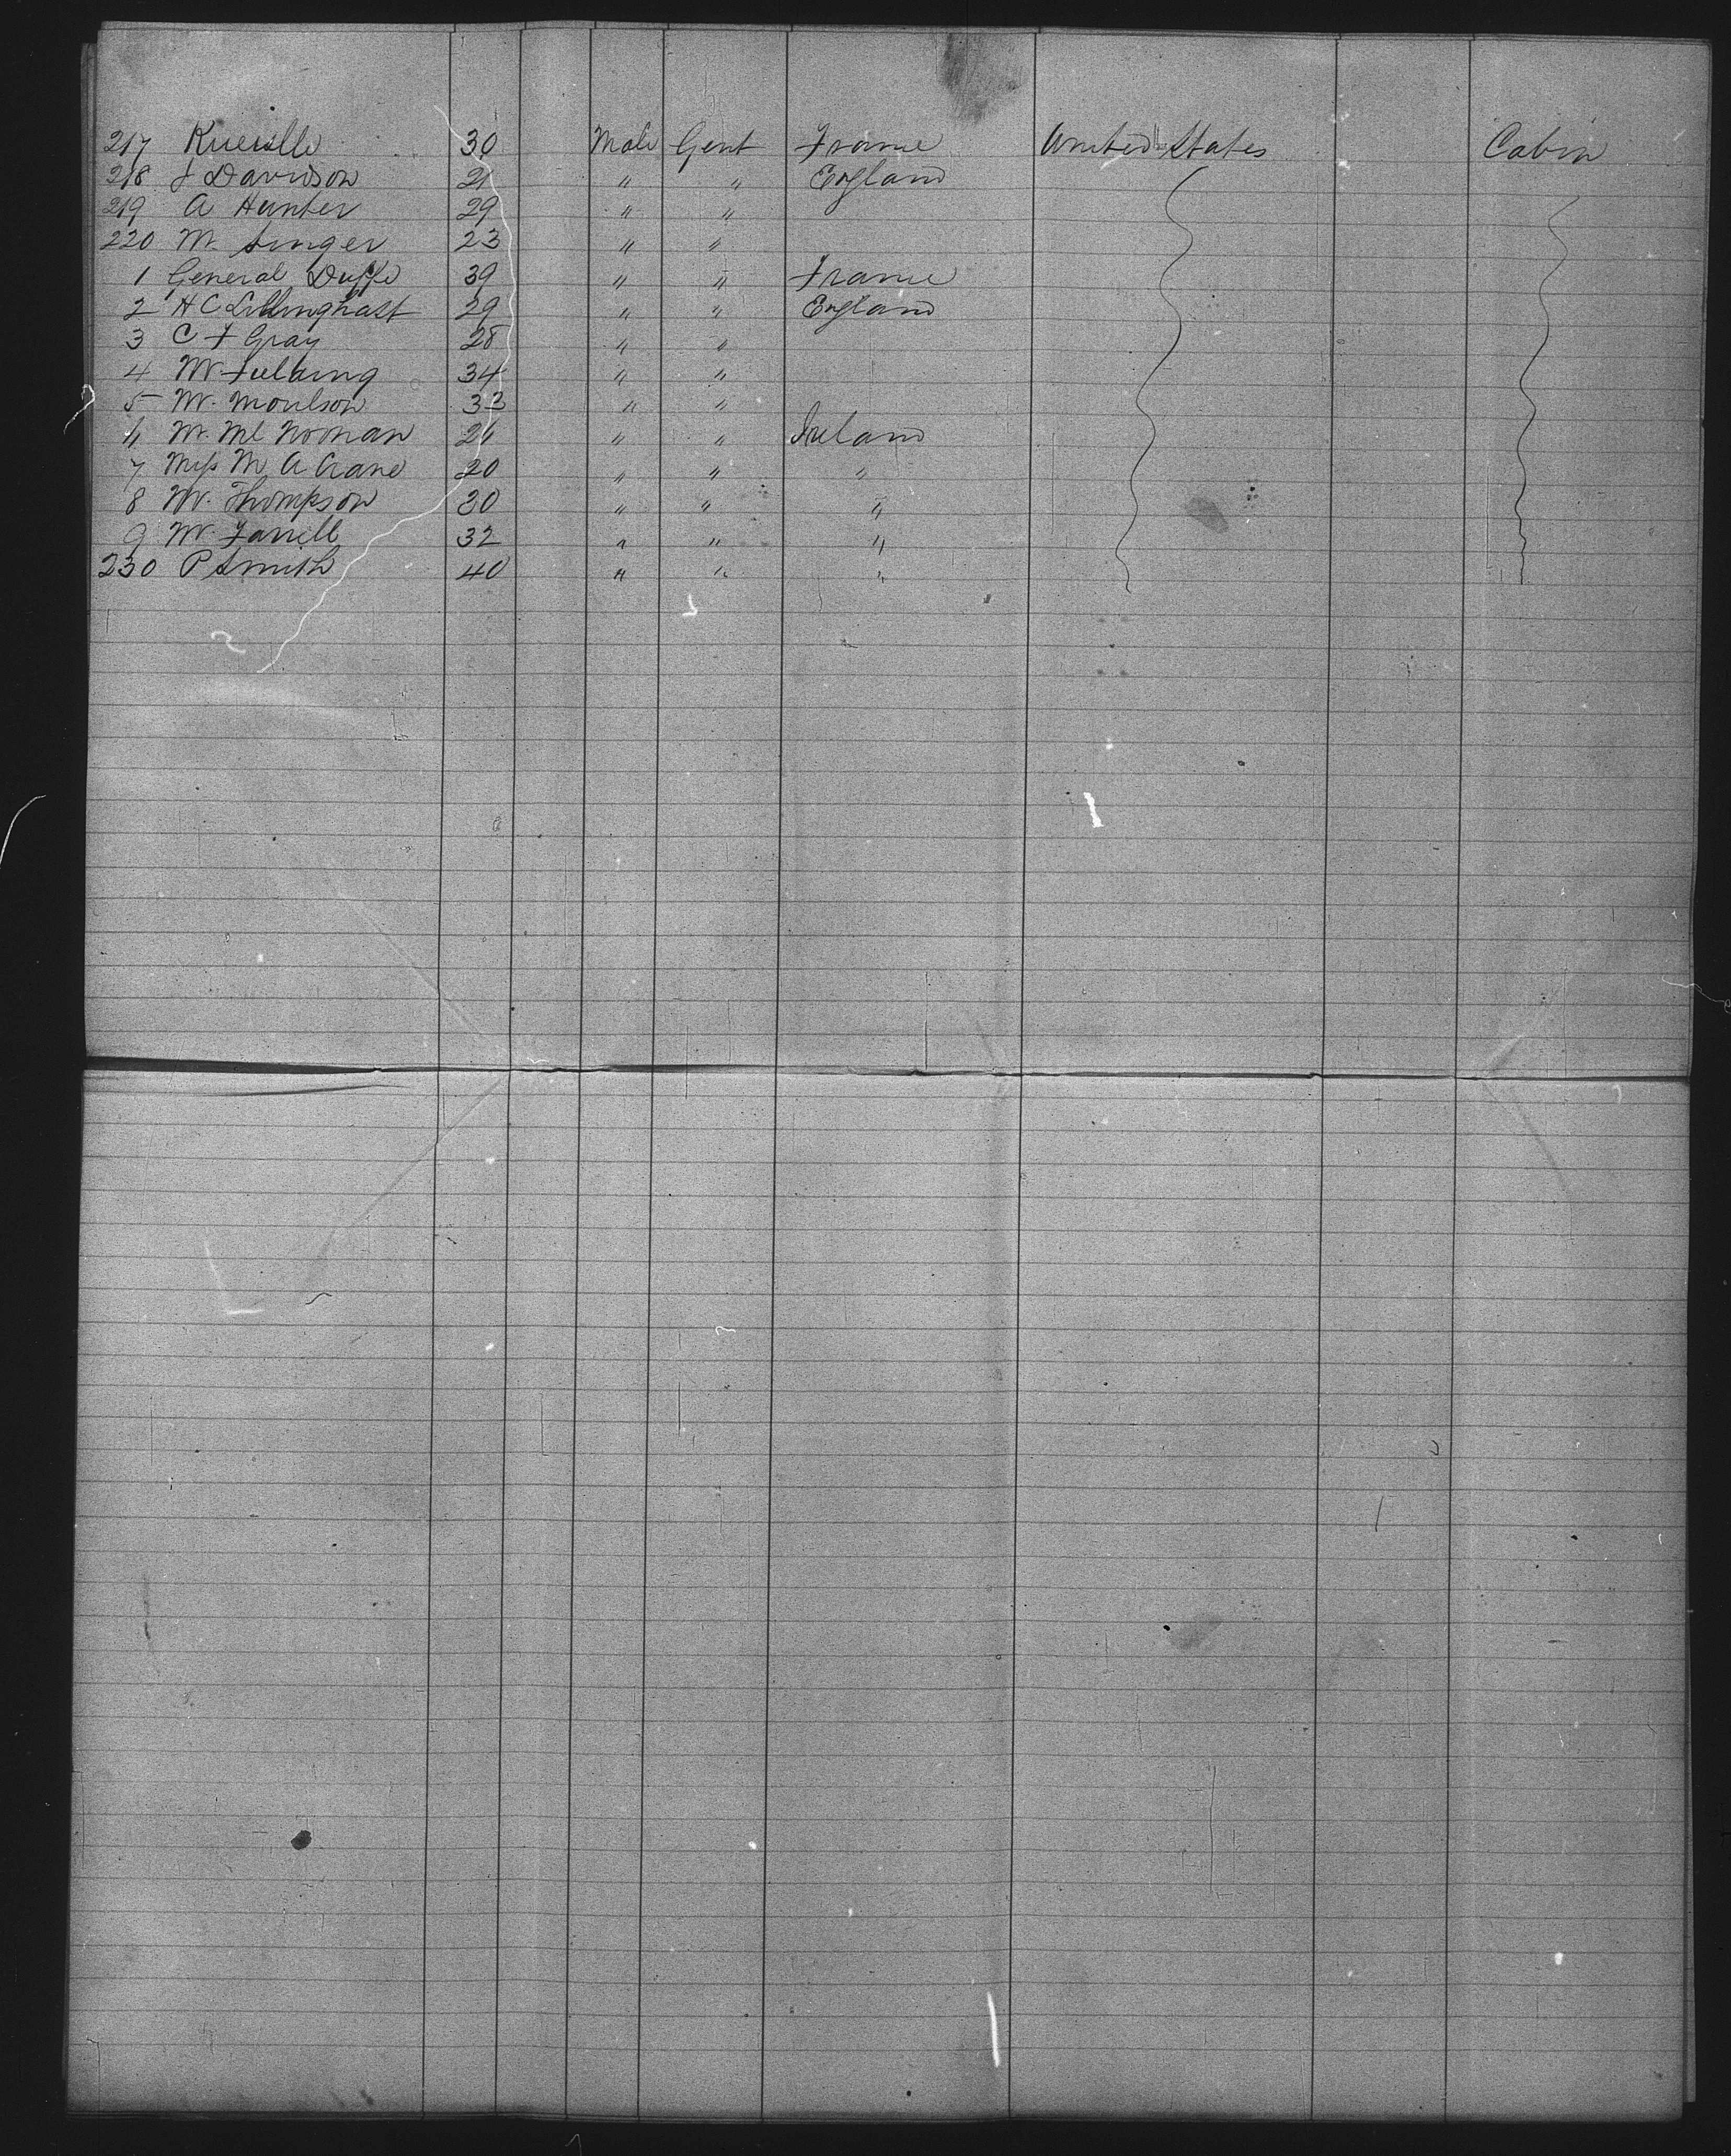 217 30 Male Gent France United States Cabin
218 J Davidson 21 " " England
219 A Hunter 29 " "
220 M. Singer 23 " "
1 General Duffe 39 " " France
2 H C Lillinghast 29 " " England
3 C F Gray 28 " "
4 W. 34 " "
5 W. Moulson 33 " "
6 W. Mc Noman 21 " " Ireland
7 Miss M A Crane 20 " " "
8 W. Thompson 30 " " "
9 W. Farrell 32 " " "
230 P Smith 40 " " "